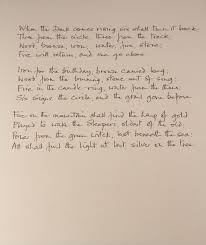 When the Dark comes rising six shall turn it back
Three from the circle, three from the track.
Wood, bronze, iron, water, fire, stone;
Five will return, and one go alone.
Iron for the birthday, bronze carried long;
Wood from the burning, stone out of song;
Fire in the candle-ring, water from the thaw;
Six Signs the circle, and the grail gone before.
Fire on the mountain shall find the harp of gold
Played to wake the Sleepers, oldest of the old;
Power from the green witch, lost beneath the sea;
All shall find the light at last, silver on the tree.